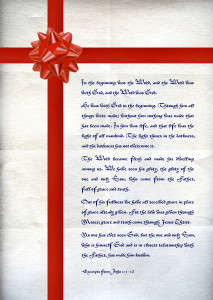 In the beginning was the Word, and the Word was
with God, and the Word was God.
He was with God in the beginning. Through him all
things were made; without him nothing was made that
has been made. In him was life, and that life was the
light of all mankind. The light shines in the darkness,
and the darkness has not overcome it.
The Word became flesh and made his dwelling
among us. We have seen his glory, the glory of the
one and only Son, who came from the Father,
full of grace and truth.
Out of his fullness we have all received grace in place
of grace already given. For the law was given through
Moses; grace and truth came through Jesus Christ.
No one has ever seen God, but the one and only Son,
who is himself God and is in closest relationship with
the Father, has made him known.
Excerpts from John 1:1-18